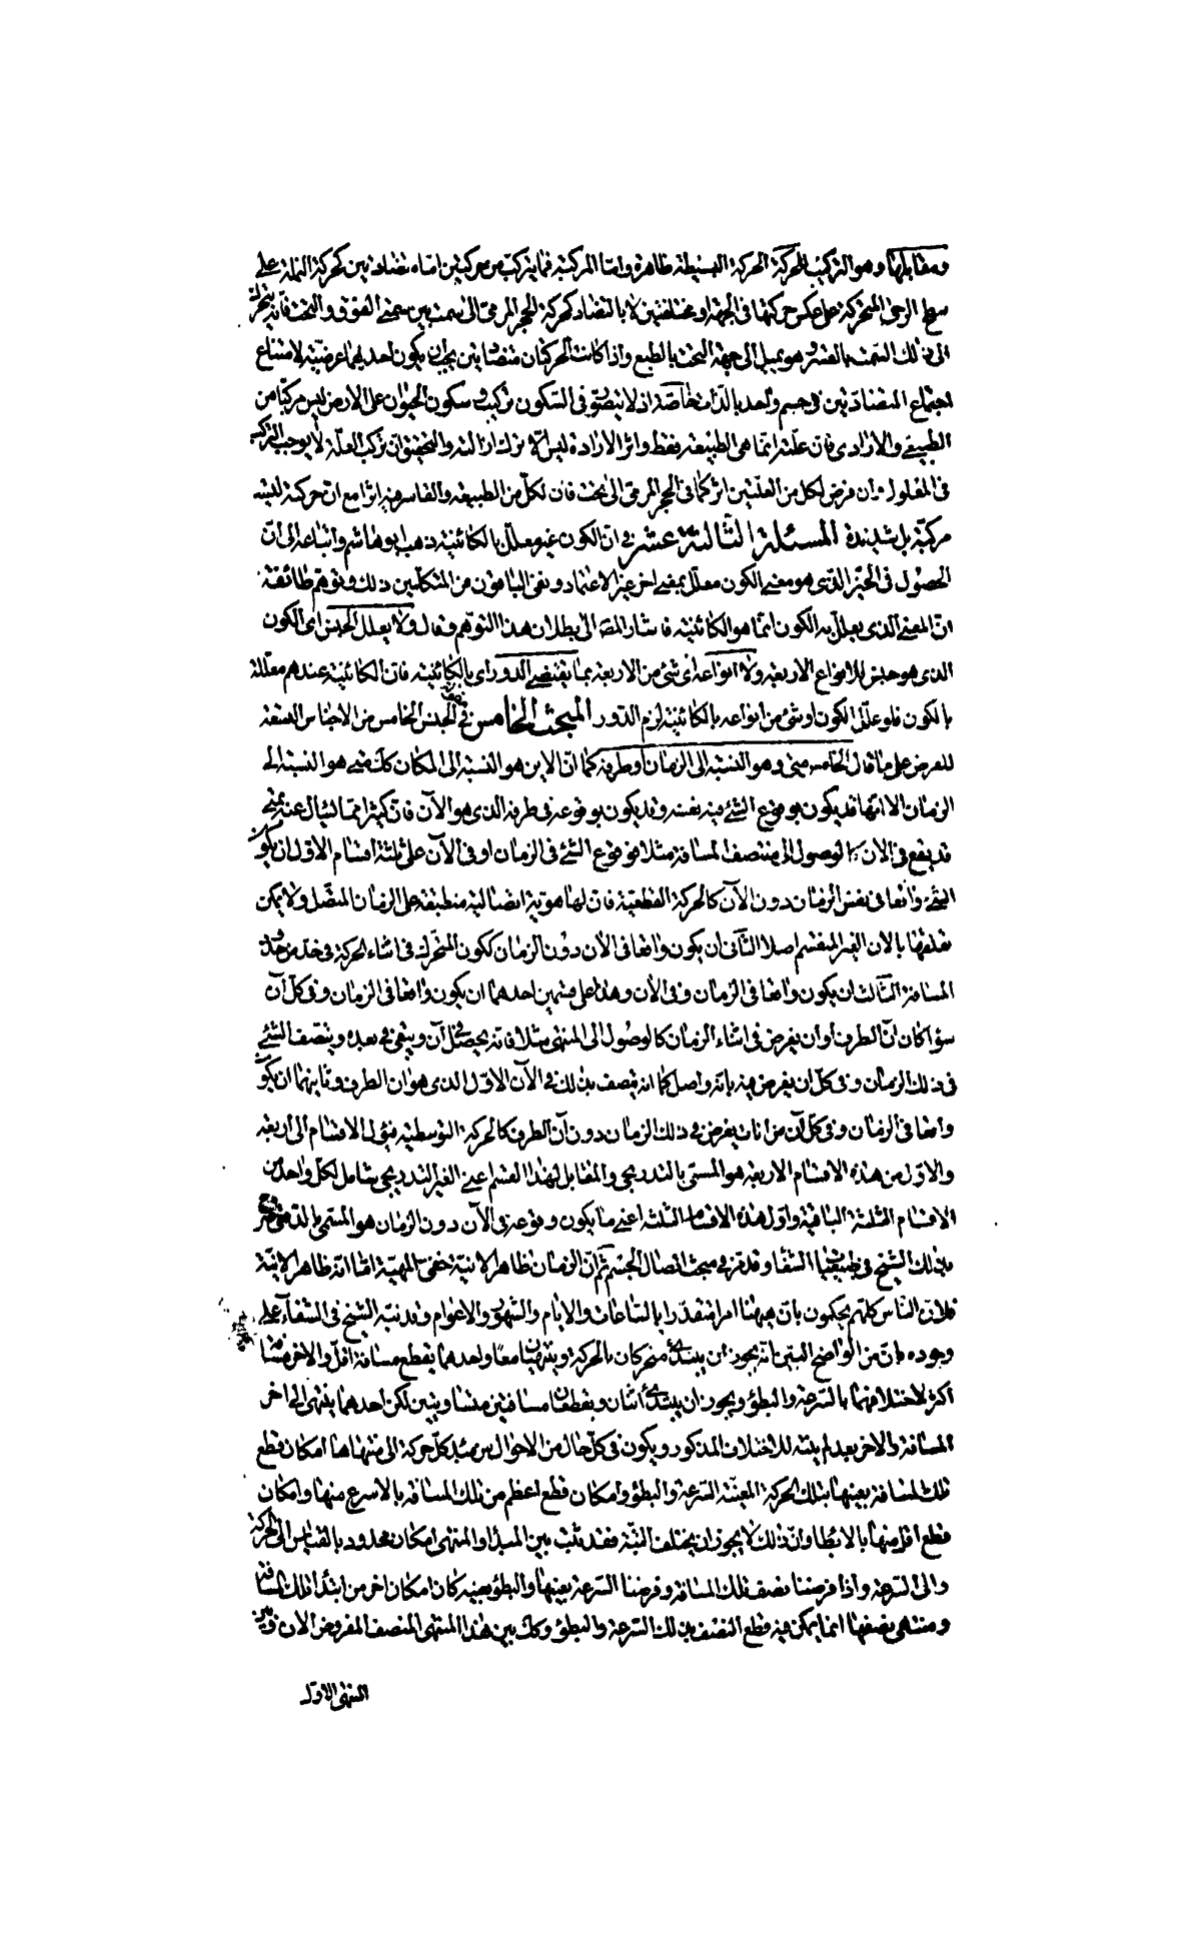 ومقابلها وهو التركيب للحركة الحركة البسيطة ظاهرة واما المركبة فما يتركب من حركتين اما متضادتين كحركة النملة على
سطح الرحى المتحركة على عكس حركتها فى الجهة او مختلفتين لا بالتضاد كحركة الحجر المرمى الى سمت بين سمتى الفوق والتحت فانه يتحرك
الى ذلك السمت بالقسر وهو يميل الى جهة التحت بالطبع واذا كانت الحركتان متضادتين يجب ان يكون احديهما عرضية لامتناع
اجتماع المتضادتين فى جسم واحد بالذات خاصة اذ لا يتصور فى السكون تركيب وسكون الحيوان على الارض ليس مركبا من
الطبيعى والارادى فان علته انما هى الطبيعة فقط واثر الارادة ليس الا ترك ازالته والتحقيق ان تركب العلة لا يوجب التركب
فى المعلول وان فرض لكل من العلتين اثر كما فى الحجر المرمى الى تحت فان لكل من الطبيعة والقاسر فيه اثرا مع ان حركته ليست
مركبة بل شديدة المسئلة الثالثة عشر فى ان الكون غير معلل بالكائنية ذهب ابو هاشم واتباعه الى ان
الحصول فى الحيز الذى هو معنى الكون معلل بمعنى اخر غير الاعتماد ونفى الباقون من المتكلمين ذلك وتوهم طائفة
ان المعنى الذى يعلل به الكون انما هو الكائنية فاشار المصة الى بطلان هذا التوهم وقال ولا يعلل الجنس اى الكون
الذى هو جنس للانواع الاربعة ولا انواعه اى شئ من الاربعة بما يقتضى الدور اى بالكائنية فان الكائنية عندهم معللة
بالكون فلو علل الكون او شئ من انواعه بالكائنية لزم الدور المبحث الخامس فى الجنس الخامس من الاجناس التسعة
للعرض على ما قال الخامس متى وهو النسبة الى الزمان او طرفه كما ان الاين هو النسبة الى المكان كك متى هو النسبة الى
الزمان الا انها قد يكون بوقوع الشئ فيه نفسه وقد يكون بوقوعه فى طرفه الذى هو الآن فان كثيرا مما يسال عنه بمتى
قد يقع فى الان كالوصول الى منتصف المسافة مثلا فوقوع الشئ فى الزمان او فى الآن على ثلثة اقسام الاول ان يكون
الشئ واقعا فى نفس الزمان دون الآن كالحركة القطعية فان لها هوية اتصالية منطبقة على الزمان المتصل ولا يمكن
تعلقها بالان الغير المنقسم اصلا الثانى ان يكون واقعا فى الان دون الزمان ككون المتحرك فى اثناء الحركة فى حد من حدود
المسافة الثالث ان يكون واقعا فى الزمان وفى الان وهذا على قسمين احدهما ان يكون واقعا فى الزمان وفى كل آن
سواء كان آن الطرف او ان يفرض فى اثناء الزمان كالوصول الى المنتهى مثلا فانه يحصل فى آن ويبقى فى بعده ويتصف الشئ
فى ذلك الزمان وفى كل ان يفرض فيه بانه واصل كما انه متصف بذلك فى الآن الاول الذى هو ان الطرف وثانيهما ان يكون
واقعا فى الزمان وفى كل آن من انات يفرض فى ذلك الزمان دون آن الطرف كالحركة التوسطية فيؤل الاقسام الى اربعة
والاول من هذه الاقسام الاربعة هو المسمى بالتدريجى والمقابل لهذا القسم اعنى الغير التدريجى شامل لكل واحد من
الاقسام الثلثة الباقية واول هذه الاقسام الثلثة اعنى ما يكون وقوعه فى الآن دون الزمان هو المسمى بالدفعى صرح
بذلك الشيخ فى طبيعيات الشفا وقد مر فى مبحث اتصال الجسم ثم ان الزمان ظاهر الانية خفى المهية اما انه ظاهر الانية
فلان الناس كلهم يحكمون بان ههنا امرا متقدرا بالساعات والايام والشهور والاعوام وقد نبه الشيخ فى الشفآء على
وجوده بان من الواضح البين انه يجوز ان يبتدئ متحركان بالحركة وينتهيا معا واحدهما يقطع مسافة اقل والاخر مسافة
اكثر لاختلافهما بالسرعة والبطؤ ويجوز ان يبتدئ اثنان ويقطعان مسافتين متساويتين لكن احدهما ينتهى الى اخر
المسافة والاخر بعد لم ينته للاختلاف المذكور ويكون فى كل حال من الاحوال من مبتدء كل حركة الى منتهاها امكان قطع
تلك المسافة بعينها بتلك الحركة المعينة السرعة والبطؤ وامكان قطع اعظم من تلك المسافة بالاسرع منها وامكان
قطع اقل منها بالابطا وان ذلك لا يجوز ان يختلف البتة فقد ثبت بين المبدا والمنتهى امكان محدود بالقياس الى الحركة
والى السرعة واذا فرضنا نصف تلك المسافة وفرضنا السرعة بعينها والبطؤ بعينه كان امكان اخر من ابتداء تلك المسافة
ومنتهى نصفها انما يمكن فيه قطع النصف بتلك السرعة والبطؤ وكك بين هذا المنتهى المنصف المفروض الان وبين
المنتهى الاول